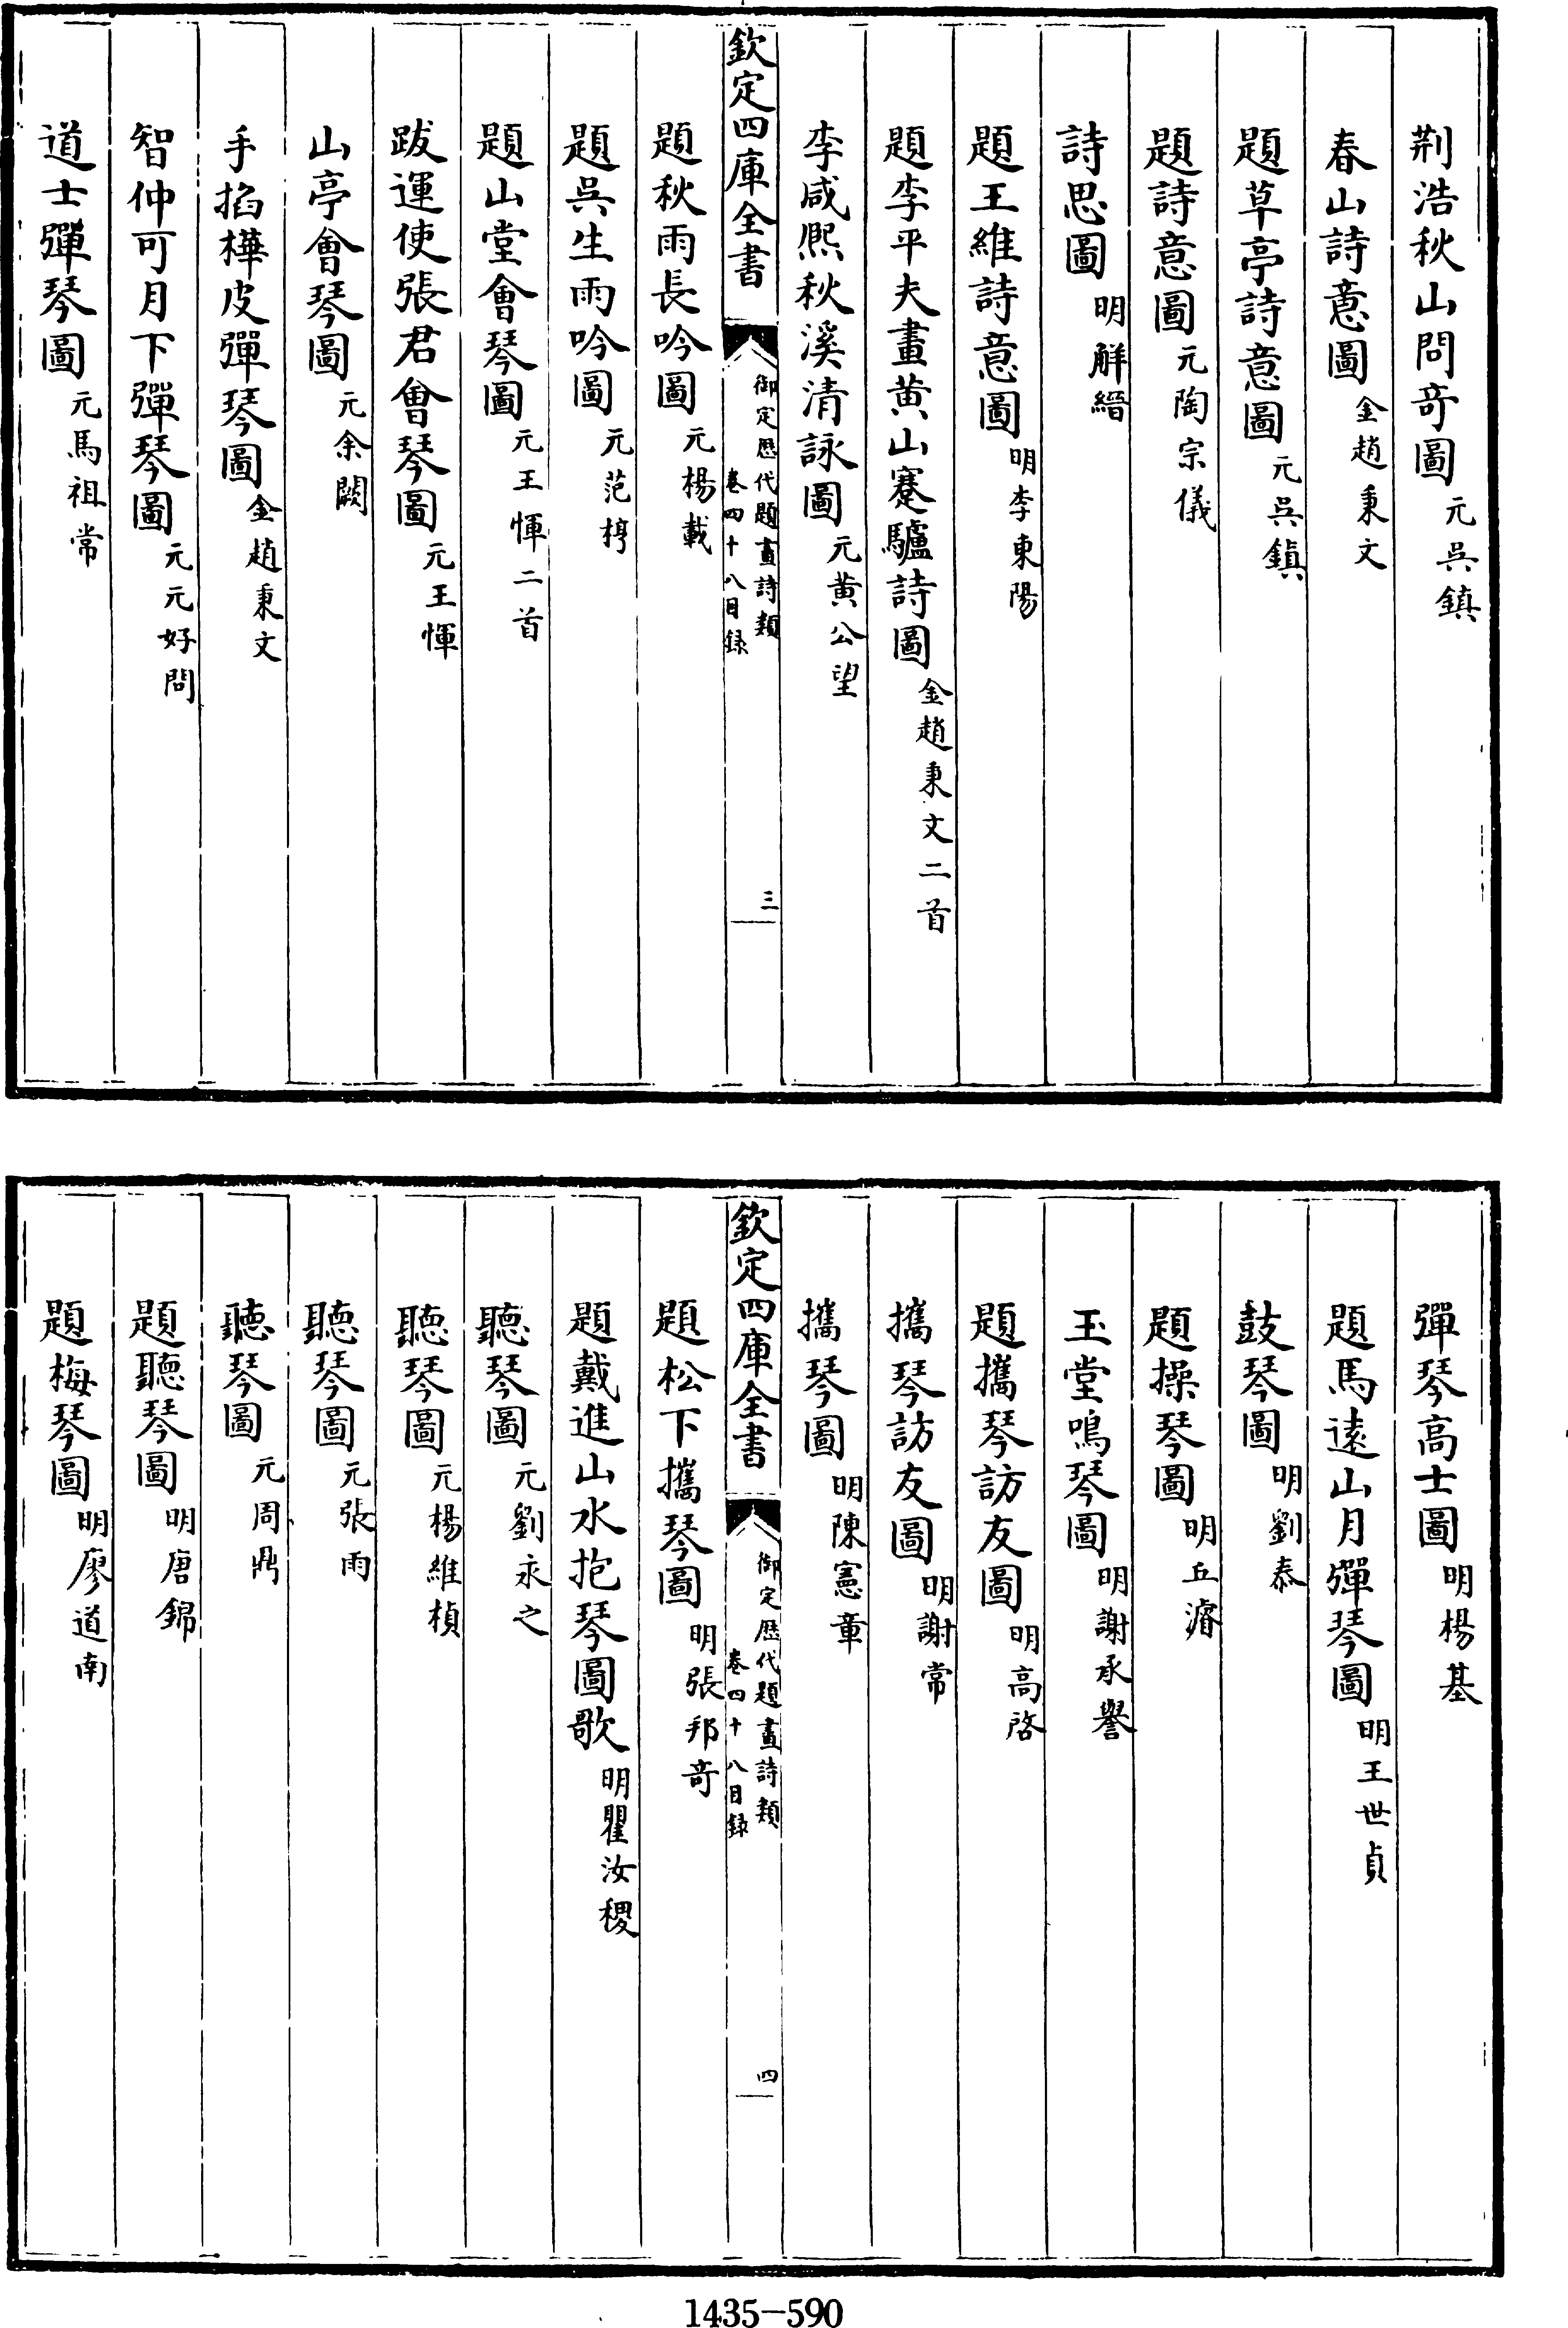 荆浩秋山問竒圖 元吳鎮
春山詩意圖 金趙秉文
題草亭詩意圖 元吳鎮
題詩意圖 元陶宗儀
詩思圖 明解縉
題王維詩意圖 明李東陽
題李平夫畫黄山蹇驢詩圖 金趙秉文二首
李咸熈秋溪清詠圖 元黄公望
欽定四庫全書
御定歴代題畫詩類
卷四十八目録
三
題秋雨長吟圖 元楊載
題吳生雨吟圖 元范梈
題山堂會琴圖 元王惲二首
跋運使張君會琴圖 元王惲
山亭會琴圖 元余闕
手搯樺皮彈琴圖 金趙秉文
智仲可月下彈琴圖 元元好問
道士彈琴圖 元馬祖常
彈琴高士圖 明楊基
題馬遠山月彈琴圖 明王世貞
鼓琴圖 明劉泰
題操琴圖 明丘濬
玉堂鳴琴圖 明謝承舉
題攜琴訪友圖 明高啓
攜琴訪友圖 明謝常
攜琴圖 明陳憲章
欽定四庫全書
御定歴代題畫詩類
卷四十八目録
四
題松下攜琴圖 明張邦竒
題戴進山水抱琴圖歌 明瞿汝稷
聽琴圖 元劉永之
聽琴圖 元楊維楨
聽琴圖 元張雨
聽琴圖 元周鼎
題聽琴圖 明唐錦
題梅琴圖 明廖道南
1435-590